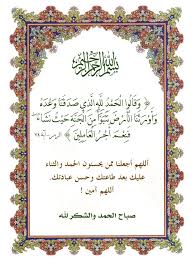 بسم الله الرحمن الرحيم
﴿ وَقَالُوا الْحَمْدُ لِلَّهِ الَّذِي صَدَقَنَا وَعْدَهُ
وَأَوْرَثَنَا الْأَرْضَ نَتَبَوَّأُ مِنَ الْجَنَّةِ حَيْثُ نَشَاءُ
فَنِعْمَ أَجْرُ الْعَامِلِينَ ﴾
اللهم أجعلنا ممن يحسنون الحمد والثناء
عليك بعد طاعتك وحسن عبادتك .
اللهم آمين !
صباح الحمد والشكر لله